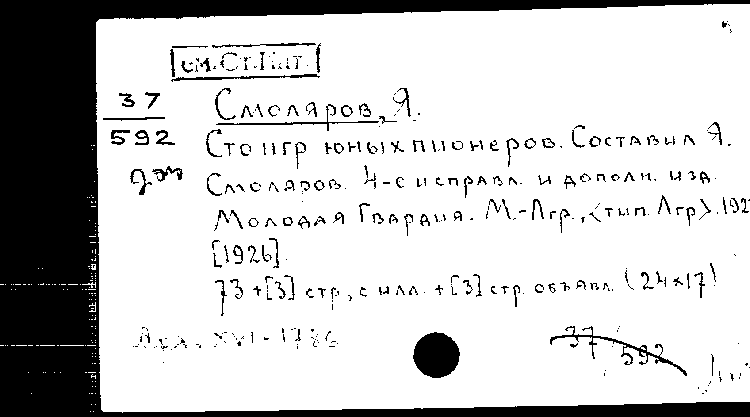 см. Ст. Шт.
37
592
Смоляров, Я.
Сто игр юных пионеров. Составил Я.
Смоляров. 4-е исправл. и дополн. изд.
Молодая Гвардия. М.-Лгр., <тип. Лгр>. 192
[1926].
73 + [3] стр, с илл. + [3] стр. объявл. (24×17)
XVI - 1786
37/592